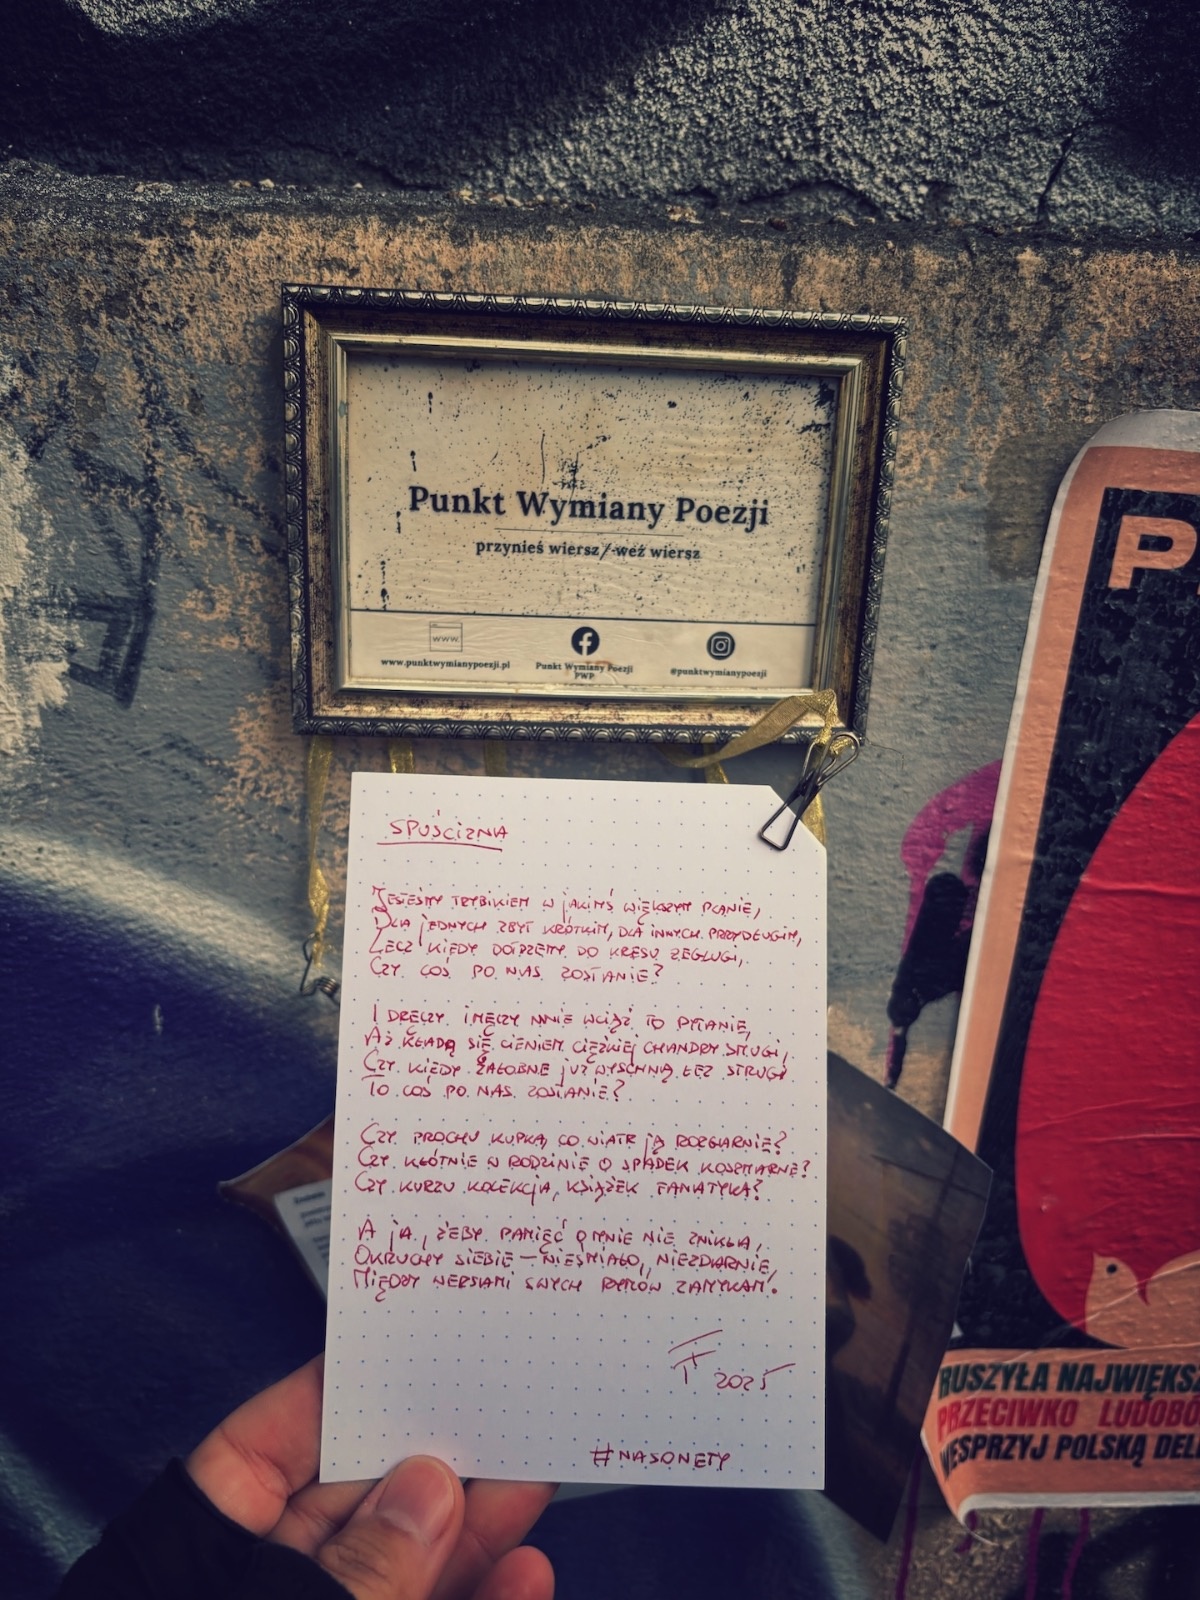 Punkt Wymiany Poezji
przynieś wiersz / weź wiersz
www.
www.punktwymianypoezji.pl
Punkt Wymiany Poezji
PWP
@punktwymianypoezji
SPUŚCIZNA
JESTEŚMY TRYBIKIEM W JAKIMŚ WIĘKSZYM PLANIE,
DLA JEDNYCH ZBYT KRÓTKIM, DLA INNYCH PRZYDŁUGIM,
LECZ KIEDY DOTRZEMY DO KRESU ŻEGLUGI,
CZY COŚ PO NAS ZOSTANIE?
I DRĘCZY I MĘCZY MNIE WCIĄŻ TO PYTANIE,
AŻ KŁADĄ SIĘ CIENIEM CIĘŻKIEJ CHANDRY SMUGI,
CZY KIEDY ŻAŁOBNE JUŻ WYSCHNĄ ŁEZ STRUGI
TO COŚ PO NAS ZOSTANIE?
CZY PROCHU KUPKA, CO WIATR JĄ ROZGARNIE?
CZY KŁÓTNIE W RODZINIE O SPADEK KOSZMARNE?
CZY KURZU KOLEKCJA, KSIĄŻEK FANATYKA?
A JA, ŻEBY PAMIĘĆ O MNIE NIE ZNIKŁA,
OKRUCHY SIEBIE – NIEŚMIAŁO, NIEZDARNIE,
MIĘDZY WERSAMI SWYCH RYMÓW ZAMYKAM.
2025
#NASONETY
P
RUSZYŁA NAJWIĘKSZ
PRZECIWKO LUDOBÓ
WESPRZYJ POLSKĄ DELE